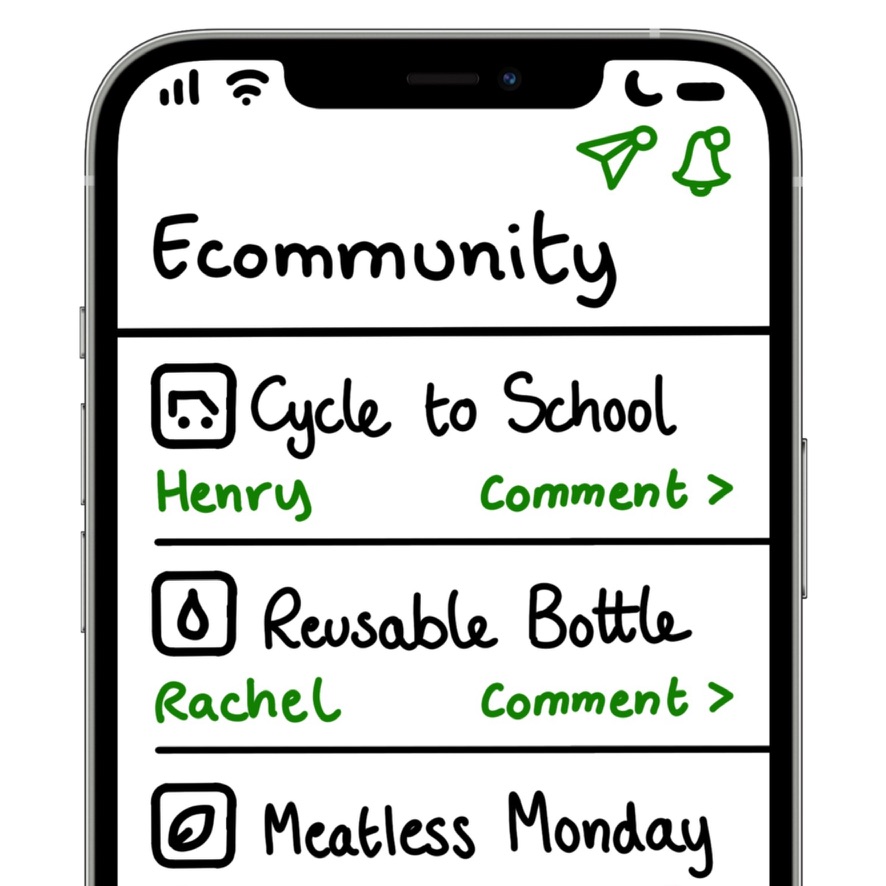 Ecommunity
Cycle to School
Henry Comment >
Reusable Bottle
Rachel Comment >
Meatless Monday